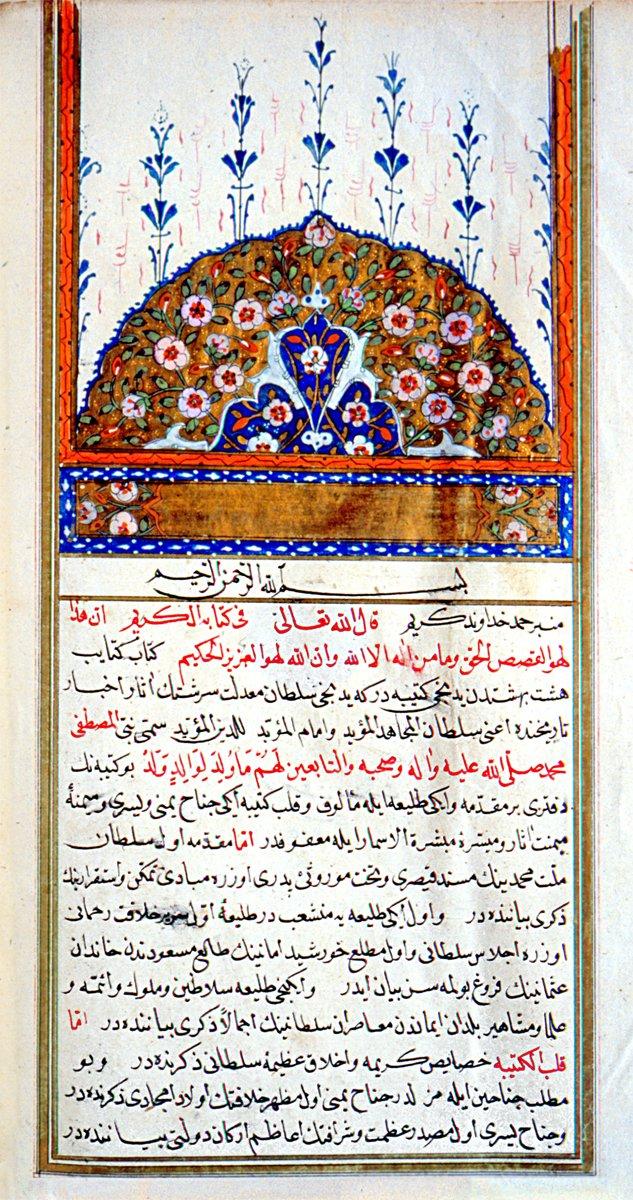 بسم الله الرحمن الرحيم
منبر حمد خداوند كريم قال الله تعالى فى كتابه الكريم ان هذا
لهو القصص الحق وما من اله الا الله وان الله لهو العزيز الحكيم كتاب كتايب
هشت بهشتدن يدنجى كتيبه در كه يدنجى سلطان معدلت سرشتك اثار و اخبار
تاريخنده اعنى سلطان المجاهد المؤيد وامام المؤيد للدين المؤيد سمى نبى المصطفى
محمد صلى الله عليه واله وصحبه والتابعين لهم ما ولد لوالد ولد بو كتيبه نك
دفترى بر مقدمه وايكى طليعه ايله مألوف و قلب كتيبه ايكى جناح يمنى ويسرى وميمنۀ
ميمنت اثار وميسرۀ مبشرة الاسمار ايله معفوفدر اما مقدمه اول سلطان
ملت محمدينك مسند قيصرى وتخت موروثئ پدرى اوزره مبادئ تمكن واستقرارينك
ذكرى بياننده در و اول ايكى طليعه يه منشعب در طليعۀ اول سرير خلافت رحمانى
اوزره اجلاس سلطانى واول مطلع خورشيد امانينك طالع مسعودندن خاندان
عثمانينك فروغ بولمه سن بيان ايدر وايكنجى طليعه سلاطين وملوك وائمه و
علما ومشاهير بلدان ايماندن معاصران سلطانينك اجمالا ذكرى بياننده در اما
قلب الكتيبه خصايص كريمه واخلاق عظيمۀ سلطانى ذكرنده در و بو
مطلب جناحين ايله در جناح يمنى اول مظهر خلافتك اولاد امجادى ذكرنده در
و جناح يسرى اول مصدر عظمت وشرافتك اعاظم اركان دولتى بياننده در